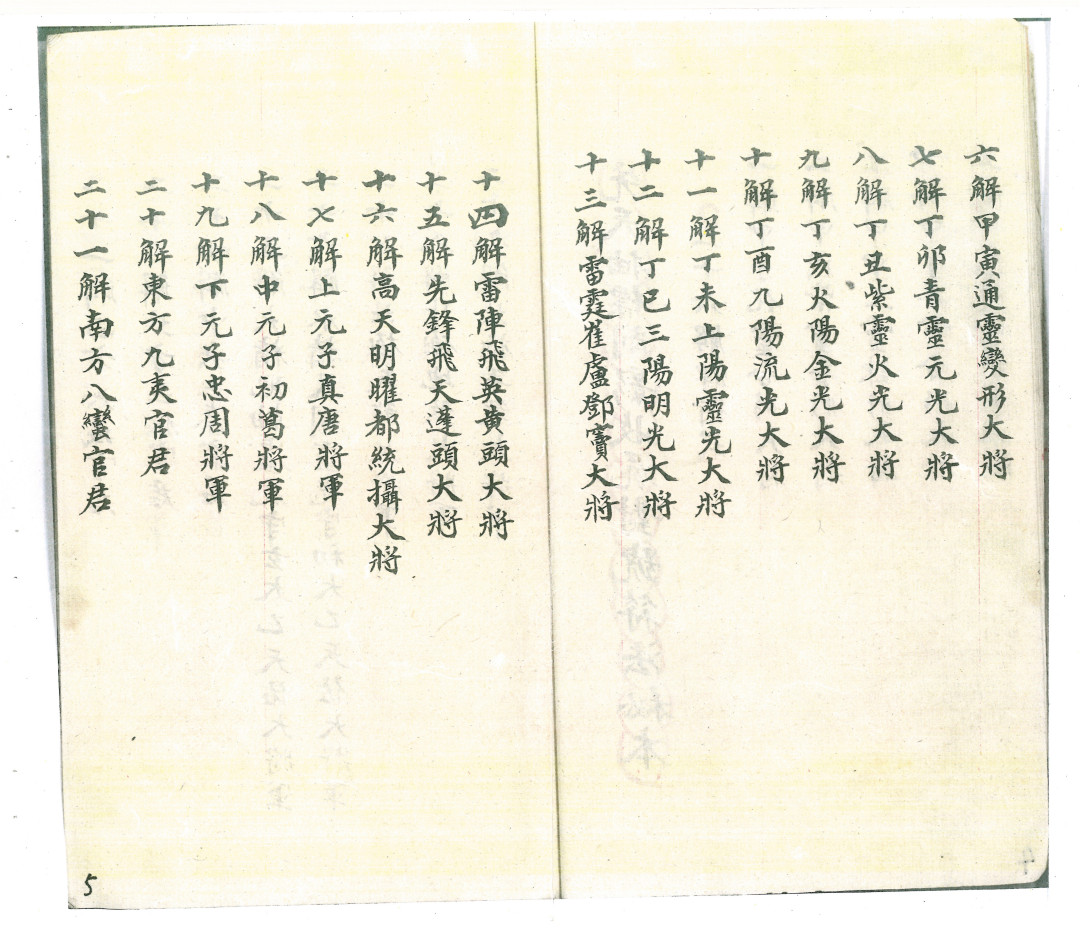 六解甲寅通靈變形大將
七解丁卯青靈元光大將
八解丁丑紫靈火光大將
九解丁亥火陽金光大將
十解丁酉九陽流光大將
十一解丁未上陽靈光大將
十二解丁巳三陽明光大將
十三解雷霆崔盧鄧竇大將
十四解雷陣飛英黄頭大將
十五解先鋒飛天蓬頭大將
十六解高天明曜都統攝大將
十七解上元子真唐將軍
十八解中元子初葛將軍
十九解下元子忠周將軍
二十解東方九夷官君
二十一解南方八蠻官君
5
4